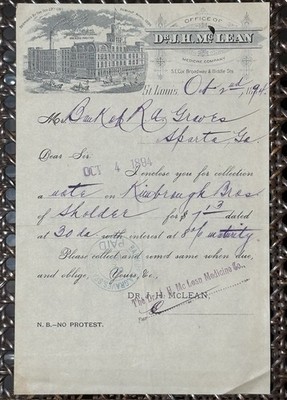 OFFICE OF
DR. J. H. McLEAN
MEDICINE COMPANY
S.E.Cor. Broadway & Biddle Sts.
St. Louis, Oct 2nd, 1894
M Bank of R A Graves
Sparta Ga.
Dear Sir
OCT 4 1894
I enclose you for collection
a note on Kimbrough Bros
of Sholder for $ 7 13 dated
at 30 da with interest at 8% maturity
Please collect and remit same when due,
and oblige, Yours, &c.,
PAID
DR. J. H. McLEAN,
The Dr. J. H. McLean Medicine Co.
Per
N. B.—NO PROTEST.